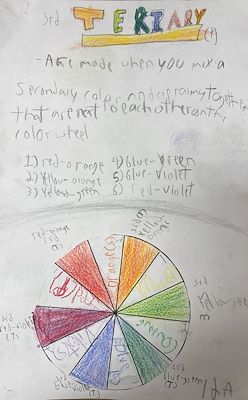 3rd TERIARY (T)
-Are made when you mix a
Secondary color and a primary together
that are next to each other on the
color wheel
1) red-orange 4) Blue-green
2) Yellow-orange 5) Blue-violet
3) Yellow-green 6) red-violet
3rd
red-orange
(T)
3rd
Yellow
orange
orange(s)
3rd
Yellow
green(s)
3rd
red-violet
(T)
violet(s)
3rd
blue-violet
(T)
3rd
(T)